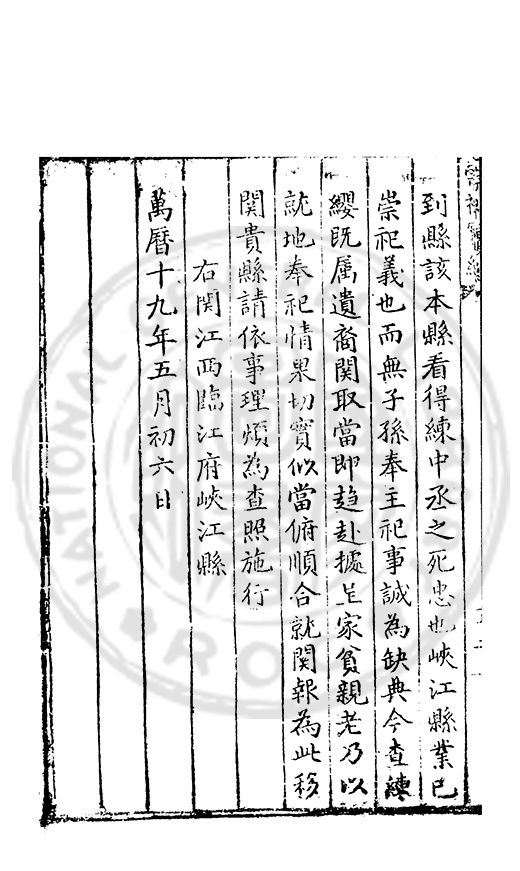 到縣該本縣看得練中丞之死忠也峽江縣業已
崇祀義也而無子孫奉主祀事誠為缺典今查練
纓既属遺裔関取當即趋赴據呈家貧親老乃以
就地奉祀情果切實似當俯順合就関報為此移
関貴縣請依事理煩為查照施行
右関江西臨江府峽江縣
萬曆十九年五月初六日